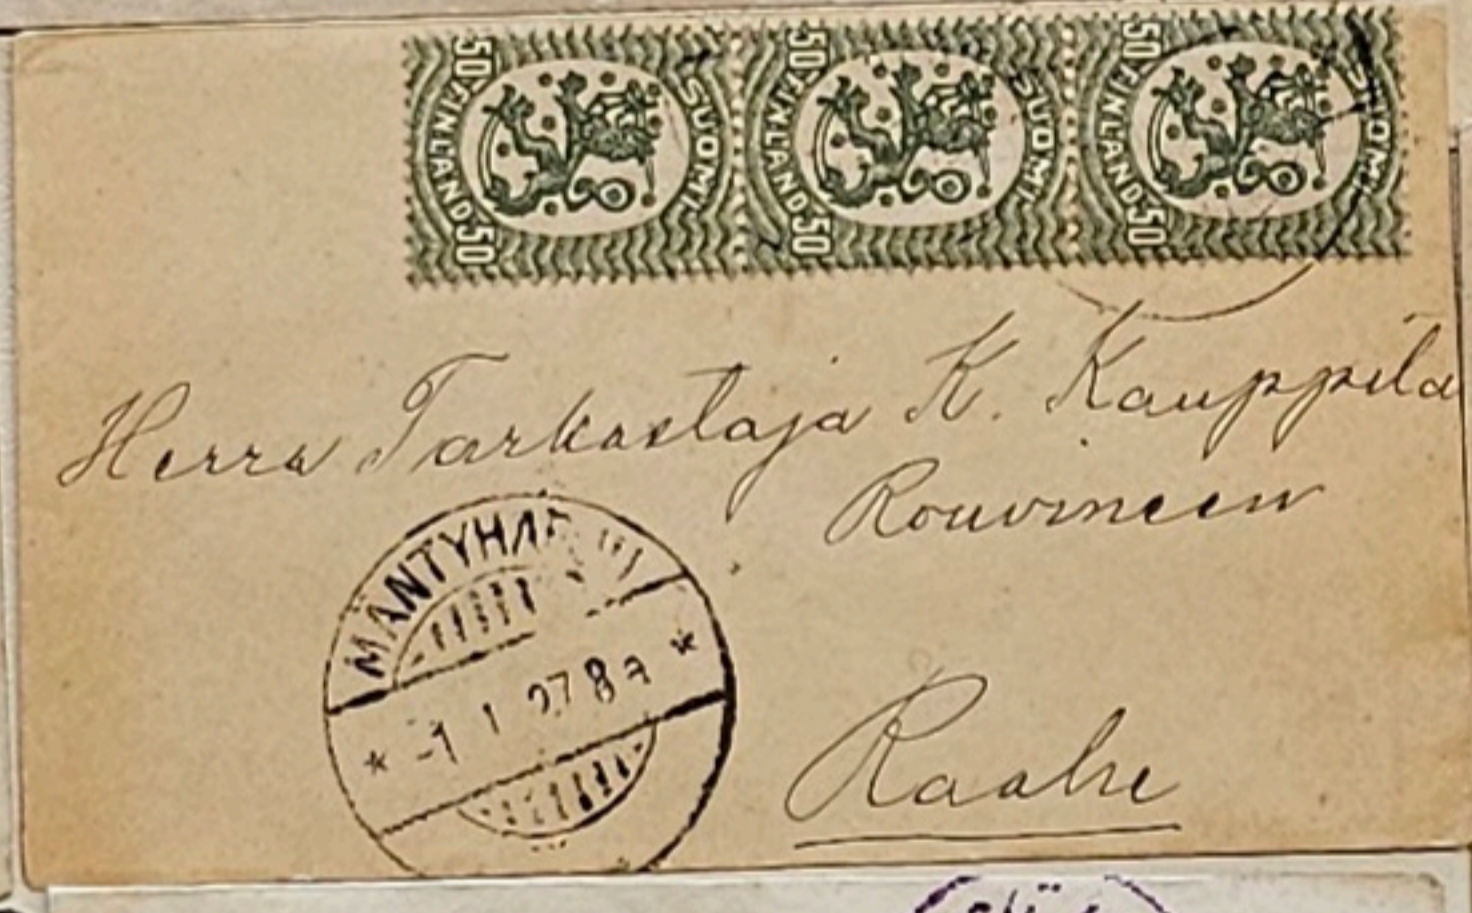 50 FINLAND 50 SUOMI
50 FINLAND 50 SUOMI
50 FINLAND 50 SUOMI
Herra Tarkastaja K. Kauppila
Rouvineen
MÄNTYHARJU
* -1 1 27 8 *
Raahe